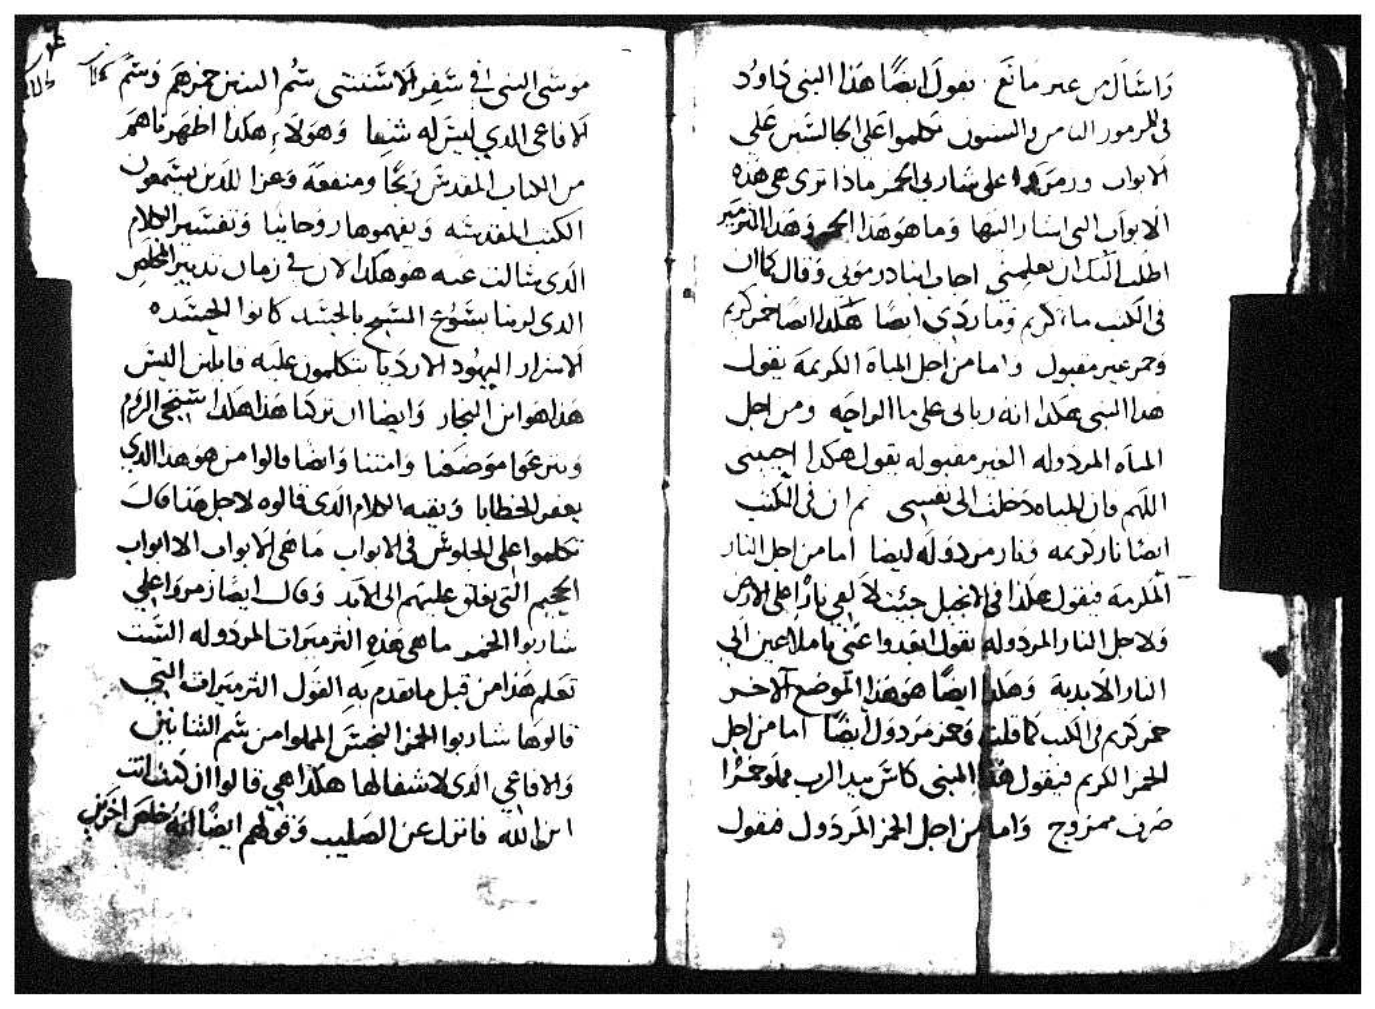 واسال من غير مانع . يقول ايضًا هذا النبي داوُد
في المزمور الثامن والستون تكلموا على الجالسين على
الابواب ورمزوا على شاربي الخمر ماذا ترى هي هذه
الابواب التي اشار اليها وما هو هذا الخمر وهذا الترمير
اطلب اليك ان تعلمني اجاب انبا درموني وقال كما ان
في الكتب ماء كريم وما ردي ايضًا هكذا ايضًا خمر كريم
وخمر غير مقبول واما من اجل المياه الكريمة يقول
هدا النبي هكدا انه رباني على ما الراحه ومن اجل
المياه المردوله الغير مقبوله يقول هكدا احييني
اللهم فان المياه دخلت الى نفسي ثم ان في الكتب
ايضًا نار كريمه ونار مردوله ايضا اما من اجل النار
المكرمة فيقول هكذا في الانجيل جيئت لالقي نارًا على الارض
ولاجل النار المردوله يقول ابعدوا عني يا ملاعين الي
النار الابدية وهكذا ايضًا هو هذا الموضع الاخر
خمر كريم في الكتب كما قلت وخمر مردول ايضًا اما من اجل
الخمر الكريم فيقول هذا النبي كاس بيد الرب مملو خمرًا
صرف ممزوج واما من اجل الخمر المردول فيقول
موسى النبي في سفر الاستثنى سُم التنين خمرهم وسُم
الافاعي الدي ليس له شفا وهولاء هكذا اظهرناهم
من الكتاب المقدس ربحًا ومنفعة وعزا للدين يسمعون
الكتب المقدسه ويفهموها روحانيا وتفسير الكلام
الدي سالت عنه هو هكدا لان في زمان تدبير المخلص
الدي لربنا يسوع المسيح بالجسد كانوا الحسده
الاشرار اليهود الارديا يتكلمون عليه قايلين اليس
هذا هو ابن النجار وايضا ان تركنا هذا هكدا ستجي الروم
وينزعوا موضعنا وامتنا وايضا قالوا من هو هدا الدي
يغفر الخطايا وبقية الكلام الدي قالوه لاجل هذا قال
تكلموا على الجلوس في الابواب ما هي الابواب الا ابواب
الجحيم التي يغلق عليهم الى الابد وقال ايضًا زمروا علي
شاربوا الخمر ما هي هذه الترميرات المردوله الست
تعلم هذا من قبل ما يقدم به القول الترميرات التي
قالوها شاربوا الخمر النجس المملوا من سم التنانين
والافاعي الذي لا شفا لها هكذا هي قالوا ان كنت انت
ابن الله فانزل عن الصليب وقولهم ايضًا انهُ خلص اخرين